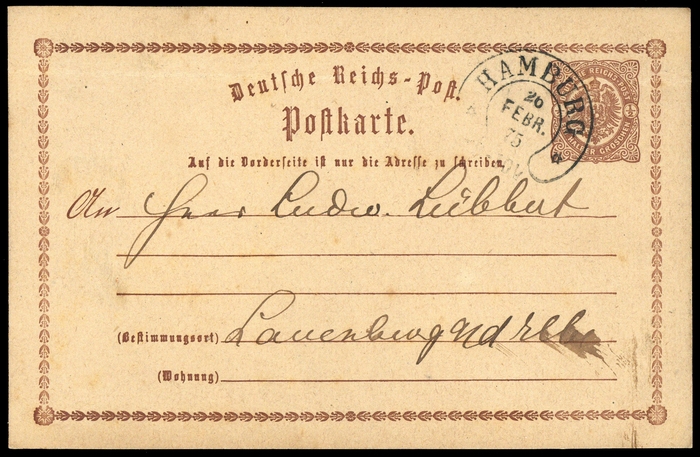 Deutsche Reichs-Post.
Postkarte.
Auf die Vorderseite ist nur die Adresse zu schreiben.
HAMBURG
26
FEBR.
75
An Herr Ludw. Lübbert
(Bestimmungsort) Lauenburg a/d Elbe
(Wohnung)